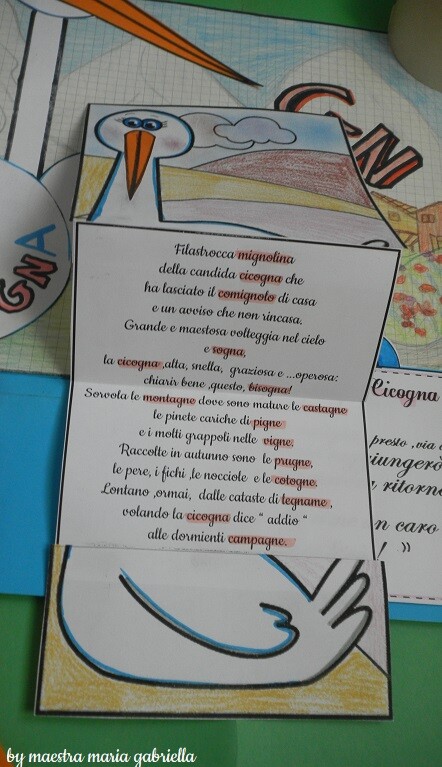 GN
GNA
Filastrocca mignolina
della candida cicogna che
ha lasciato il comignolo di casa
e un avviso che non rincasa,
Grande e maestosa volteggia nel cielo
e sogna,
la cicogna ,alta, snella, graziosa e ...operosa:
chiarir bene ,questo, bisogna!
Sorvola le montagne dove sono mature le castagne
le pinete cariche di pigne
e i molti grappoli nelle vigne.
Raccolte in autunno sono le prugne,
le pere, i fichi ,le nocciole e le cotogne.
Lontano ,ormai, dalle cataste di legname ,
volando la cicogna dice " addio "
alle dormienti campagne.
Cicogna
presto ,via
ritorn
n caro
! »
by maestra maria gabriella